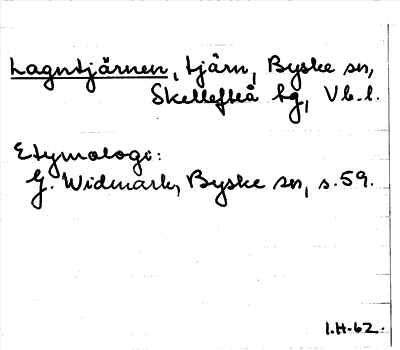 Lagntjärnen, tjärn, Byske sn,
Skellefteå tg, Vb. l.
Etymologi:
G. Widmark, Byske sn, s. 59.
I.H-62.